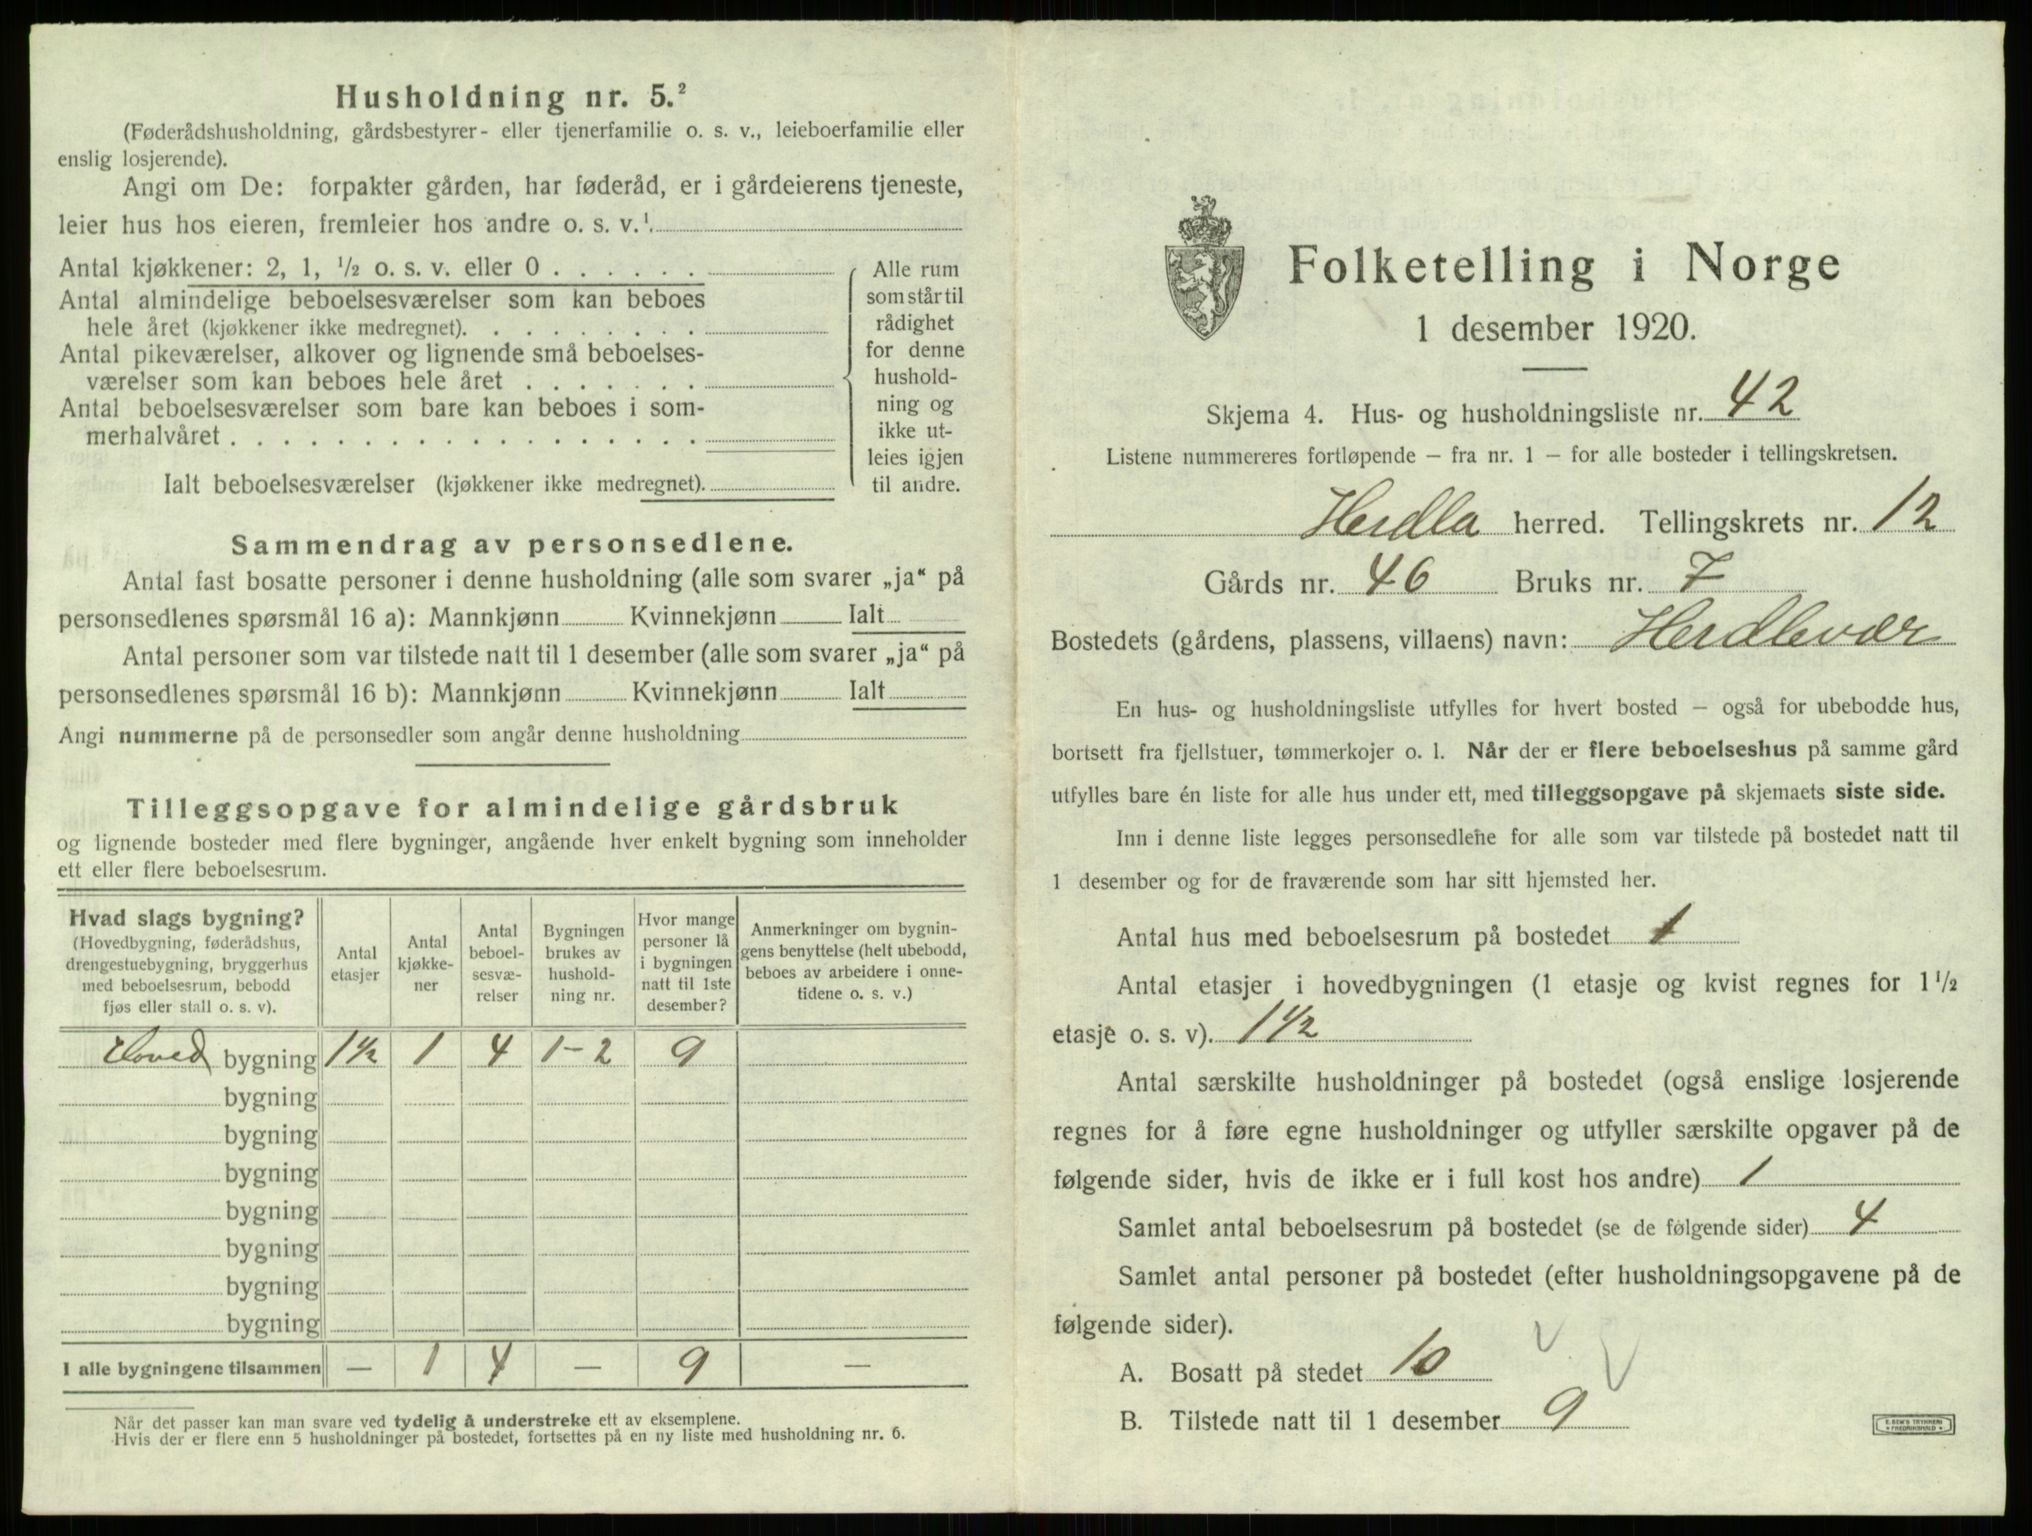 Husholdning nr. 5.²
(Føderådshusholdning, gårdsbestyrer- eller tjenerfamilie o. s. v., leieboerfamilie eller
enslig losjerende).
Angi om De: forpakter gården, har føderåd, er i gårdeierens tjeneste,
leier hus hos eieren, fremleier hos andre o. s. v.¹
Antal kjøkkener: 2, 1, ½ o. s. v. eller 0 . . . . . .
Antal almindelige beboelsesværelser som kan beboes
hele året (kjøkkener ikke medregnet). . . . . . . . .
Antal pikeværelser, alkover og lignende små beboelses-
værelser som kan beboes hele året . . . . . . .
Antal beboelsesværelser som bare kan beboes i som-
merhalvåret . . . . . . . . . . . . . . . . . .
Ialt beboelsesværelser (kjøkkener ikke medregnet).
Alle rum
som står til
rådighet
for denne
hushold-
ning og
ikke ut-
leies igjen
til andre.
Sammendrag av personsedlene.
Antal fast bosatte personer i denne husholdning (alle som svarer „ja“ på
personsedlenes spørsmål 16 a): Mannkjønn Kvinnekjønn Ialt
Antal personer som var tilstede natt til 1 desember (alle som svarer „ja“ på
personsedlenes spørsmål 16 b): Mannkjønn Kvinnekjønn Ialt
Angi nummerne på de personsedler som angår denne husholdning
Tilleggsopgave for almindelige gårdsbruk
og lignende bosteder med flere bygninger, angående hver enkelt bygning som inneholder
ett eller flere beboelsesrum.
Hvad slags bygning?
(Hovedbygning, føderådshus,
drengestuebygning, bryggerhus
med beboelsesrum, bebodd
fjøs eller stall o. s. v).
Antal
etasjer
Antal
kjøkke-
ner
Antal
beboel-
sesvæ-
relser
Bygningen
brukes av
hushold-
ning nr.
Hvor mange
personer lå
i bygningen
natt til 1ste
desember?
Anmerkninger om bygnin-
gens benyttelse (helt ubebodd,
beboes av arbeidere i onne-
tidene o. s. v.)
Hoved bygning 1½ 1 4 1-2 9
bygning
bygning
bygning
bygning
bygning
bygning
bygning
I alle bygningene tilsammen — 1 4 — 9 —
Når det passer kan man svare ved tydelig å understreke ett av eksemplene.
Hvis der er flere enn 5 husholdninger på bostedet, fortsettes på en ny liste med husholdning nr. 6.
Folketelling i Norge
1 desember 1920.
Skjema 4. Hus- og husholdningsliste nr. 42
Listene nummereres fortløpende — fra nr. 1 — for alle bosteder i tellingskretsen.
Herdla herred. Tellingskrets nr. 12
Gårds nr. 46 Bruks nr. 7
Bostedets (gårdens, plassens, villaens) navn: Herdlevær
En hus- og husholdningsliste utfylles for hvert bosted — også for ubebodde hus,
bortsett fra fjellstuer, tømmerkojer o. l. Når der er flere beboelseshus på samme gård
utfylles bare én liste for alle hus under ett, med tilleggsopgave på skjemaets siste side.
Inn i denne liste legges personsedlene for alle som var tilstede på bostedet natt til
1 desember og for de fraværende som har sitt hjemsted her.
Antal hus med beboelsesrum på bostedet 1
Antal etasjer i hovedbygningen (1 etasje og kvist regnes for 1½
etasje o. s. v). 1½
Antal særskilte husholdninger på bostedet (også enslige losjerende
regnes for å føre egne husholdninger og utfyller særskilte opgaver på de
følgende sider, hvis de ikke er i full kost hos andre) 1
Samlet antal beboelsesrum på bostedet (se de følgende sider) 4
Samlet antal personer på bostedet (efter husholdningsopgavene på de
følgende sider).
A. Bosatt på stedet 10
B. Tilstede natt til 1 desember 9
E. SEM'S TRYKKERI
FREDRIKSHALD